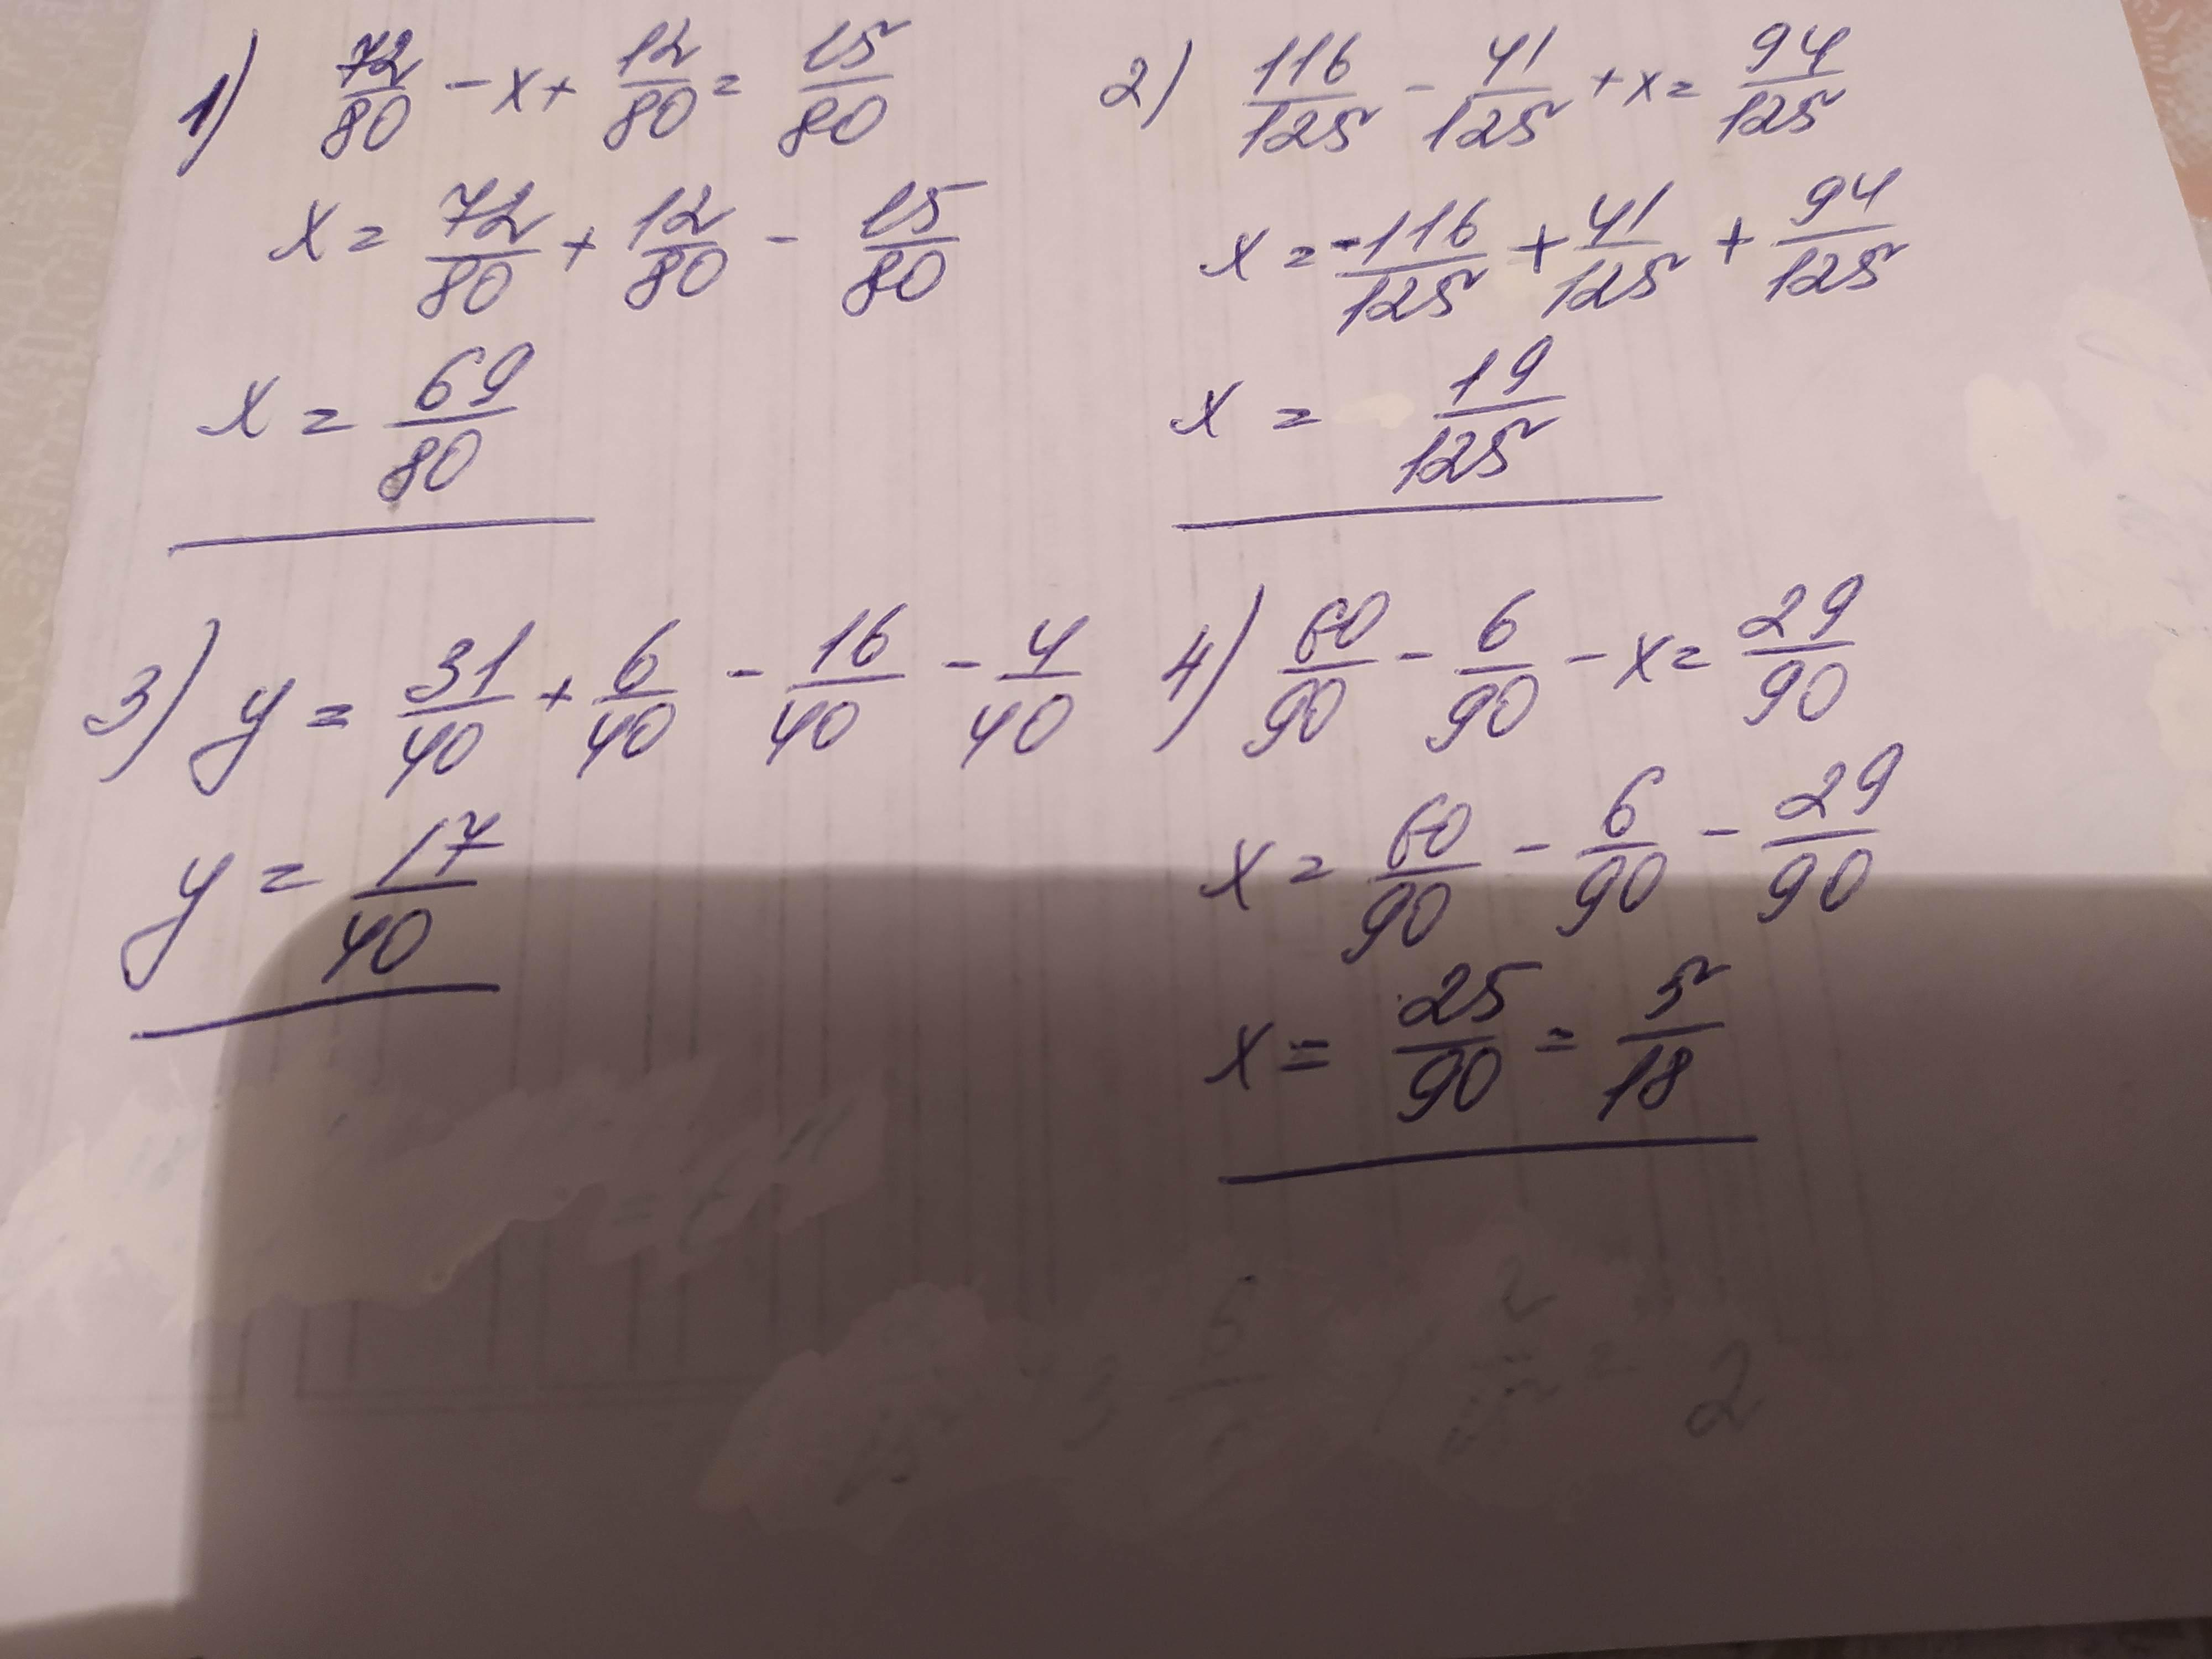 1) 72/80 - x + 12/80 = 15/80
x = 72/80 + 12/80 - 15/80
x = 69/80
2) 116/125 - 41/125 + x = 94/125
x = -116/125 + 41/125 + 94/125
x = 19/125
3) y = 31/40 + 6/40 - 16/40 - 4/40
y = 17/40
4) 60/90 - 6/90 - x = 29/90
x = 60/90 - 6/90 - 29/90
x = 25/90 = 5/18